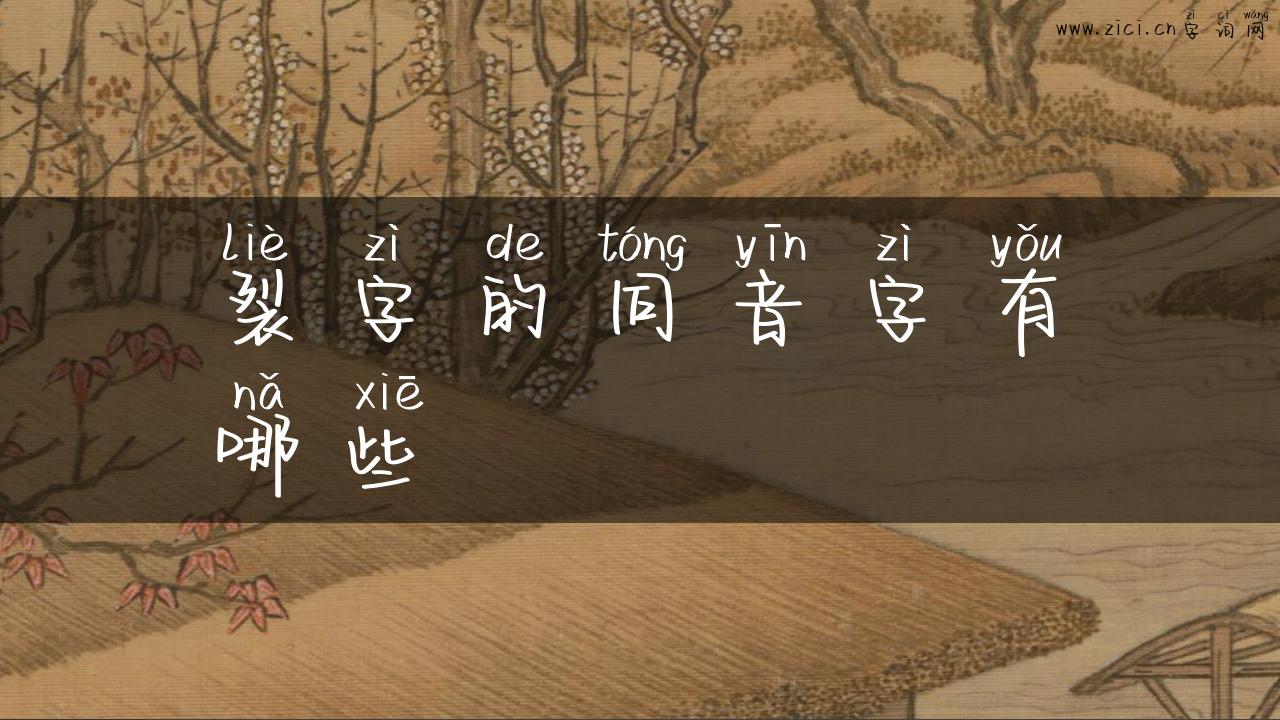 zì cí wǎng
www.zici.cn字词网
liè zì de tóng yīn zì yǒu
裂字的同音字有
nǎ xiē
哪些